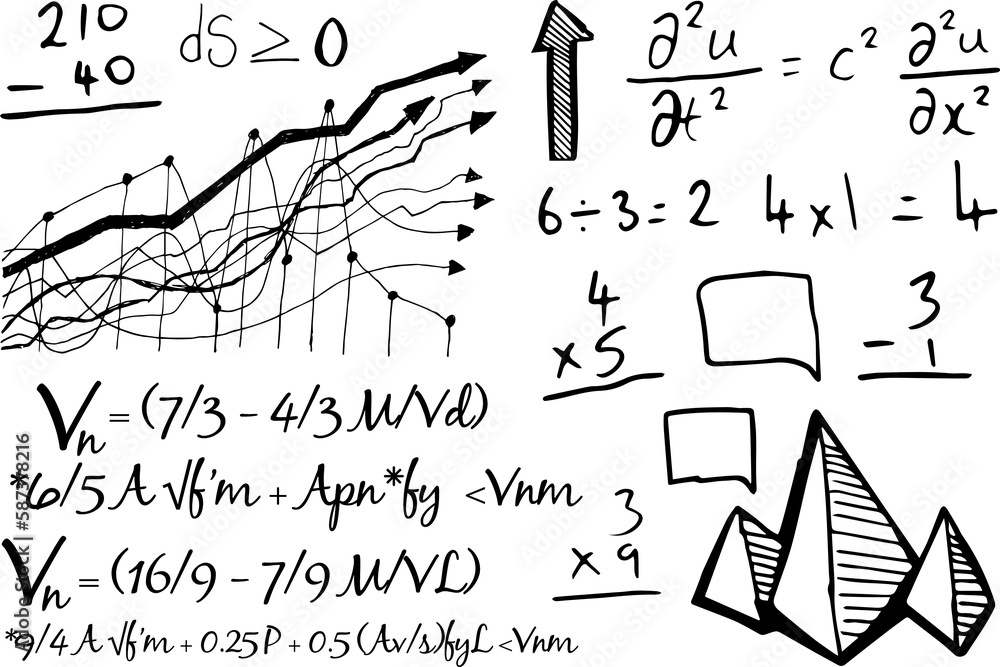 210
- 40
dS ≥ 0
∂²u/∂t² = c² ∂²u/∂x²
6÷3=2 4x1 = 4
4
x5
3
- 1
Vn = (7/3 - 4/3 M/Vd)
*6/5 A √f'm + Apn*fy <Vnm
3
x 9
Vn = (16/9 - 7/9 M/VL)
*9/4 A √f'm + 0.25P + 0.5 (Av/s)fyL <Vnm
Adobe Stock | #587378216